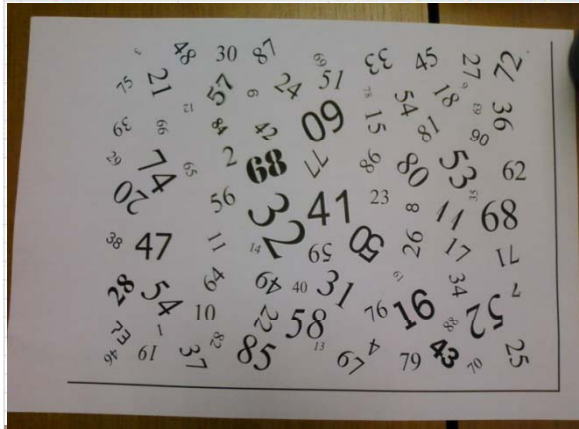 48 30 87 69 33 45 27 72
75 21 57 6 24 51 78 54 18 9 36
39 66 12 84 42 60 15 81 90
29 74 65 2 68 77 86 80 53 62
20 56 32 41 23 8 11 68
38 47 11 14 59 50 26 17 71
28 54 64 49 40 31 61 34 7
10 22 58 76 16 88 52
1 61 37 82 85 13 67 4 79 43 70 25
46